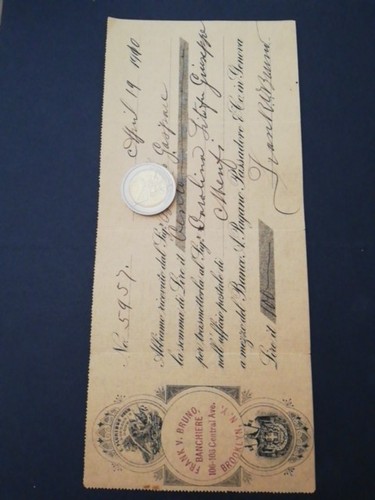 No. 5957. April 19 1910
Abbiamo ricevuto dal Sigr. Gaspare
la somma di Lire it.
per trasmetterla al Sigr. Dorolina fu Giuseppe
nell'ufficio postale di Menfi
a mezzo del Banco A. Pogano Passadore & Co. in Genova
Lire it. 100 Frank V. Bruno
FRANK V. BRUNO,
BANCHIERE
Central Ave.
BROOKLYN, N.Y.